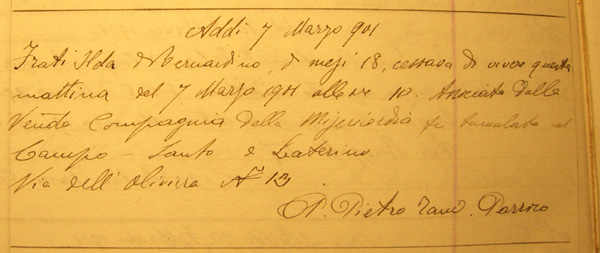 Addi 7 Marzo 901
Frati Ilda di Bernardino, di mesi 18, cessava di vivere questa
mattina del 7 Marzo 1901 alle ore 10. Associata dalla
Venda Compagnia della Misericordia fu tumulata nel
Campo-Santo di Laterino.
Via dell' Oliviera N° 13
P. Pietro Parroco